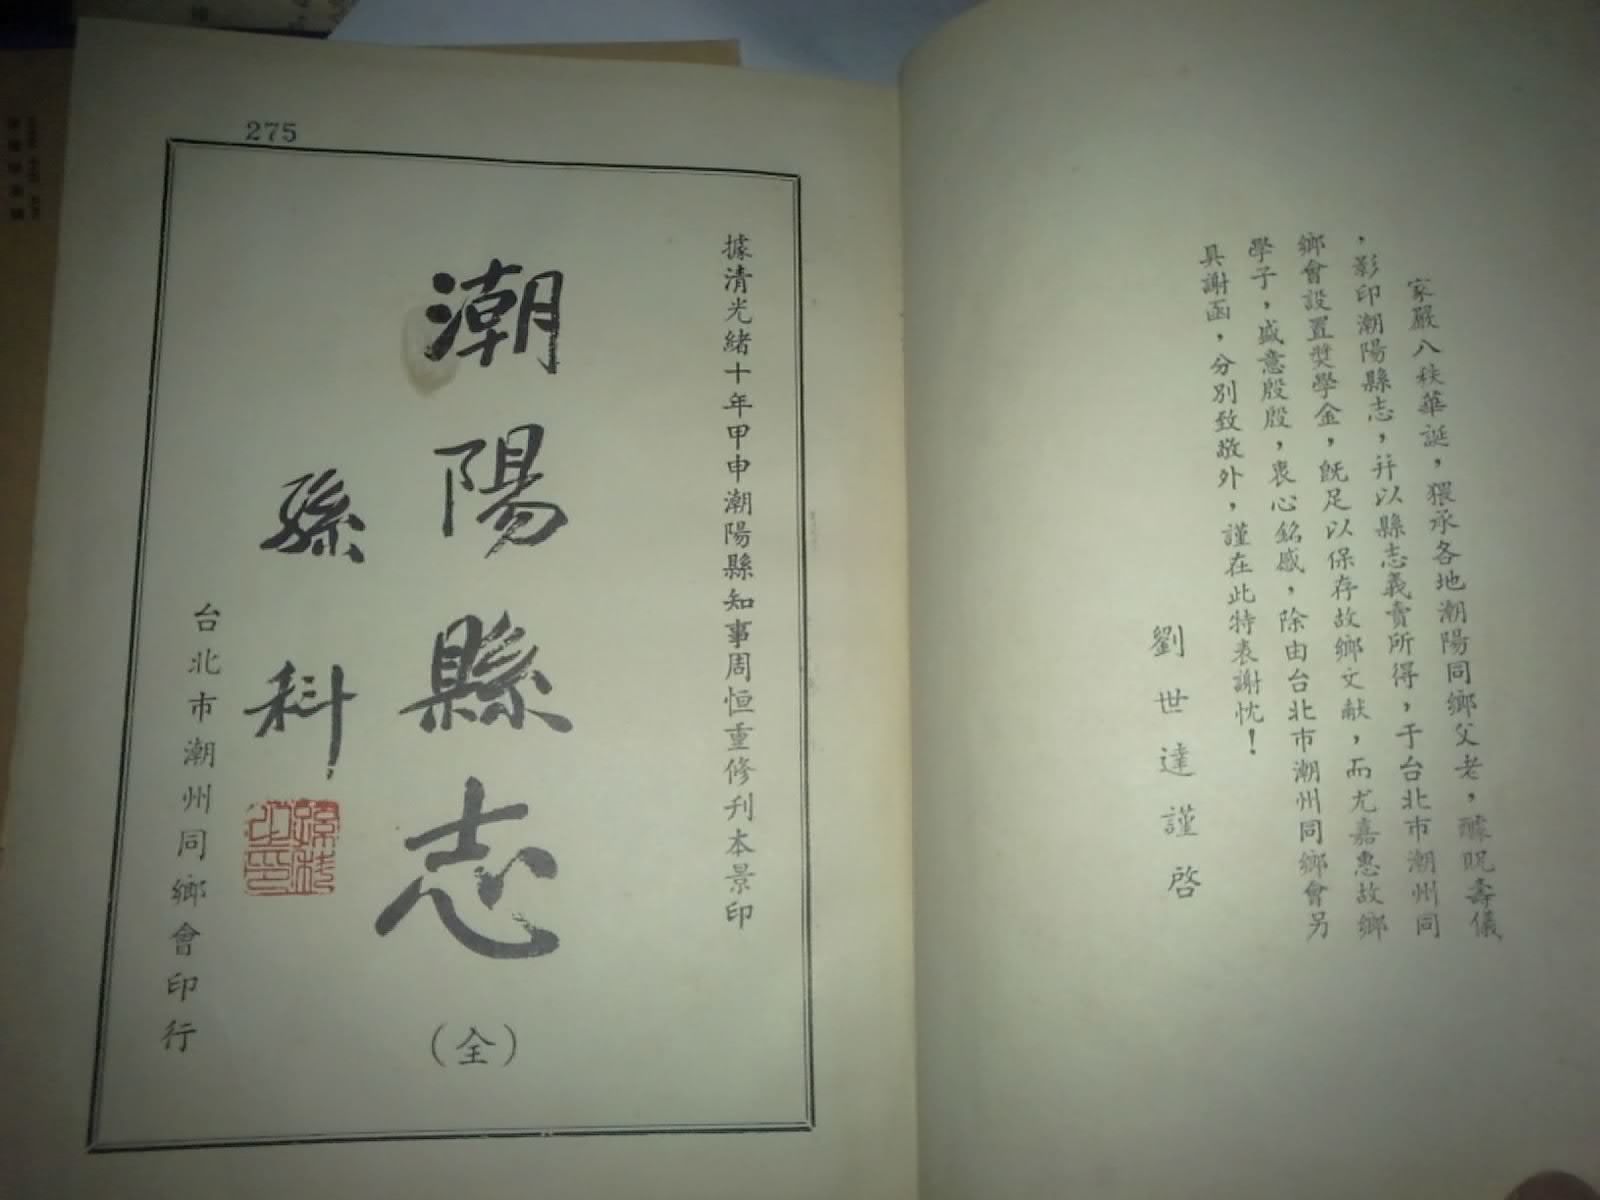 家嚴八秩華誕，猥承各地潮陽同鄉父老，醵貺壽儀
，影印潮陽縣志，幷以縣志義賣所得，于台北市潮州同
鄉會設置奬學金，旣足以保存故鄉文献，而尤嘉惠故鄉
學子，盛意殷殷，衷心銘感，除由台北市潮州同鄉會另
具謝函，分別致敬外，謹在此特表謝忱！
劉世達謹啓
275
據清光緒十年甲申潮陽縣知事周恒重修刊本景印
潮陽縣志
（全）
孫科
台北市潮州同鄉會印行